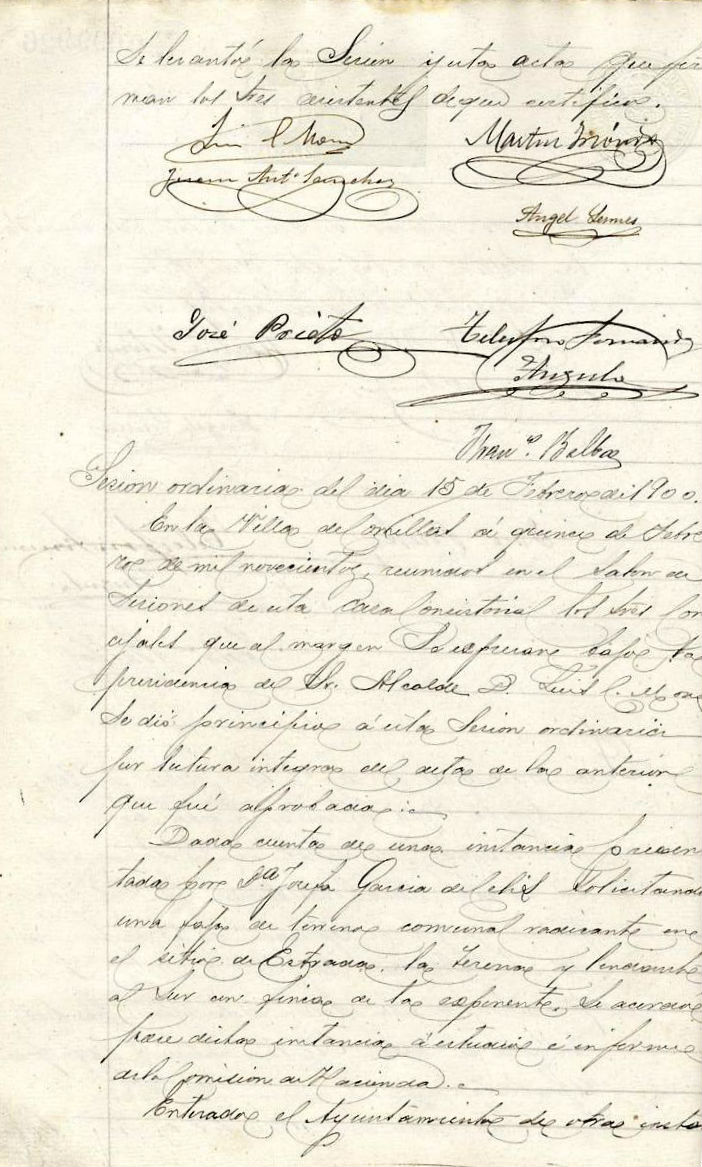 Se levantó la Sesion y esta acta que fir
man los Sres asistentes de que certifico.
Luis C Mon
Martin
Juan Antº Sanchez
Angel
José Prieto
Telesforo Fernandez
Angulo
Franco. Balbas
Sesion ordinaria del dia 15 de Febrero de 1900.
En la Villa de á quince de Febre
ro de mil novecientos, reunidos en el Salon de
Sesiones de esta Casa Consistorial los Sres Con
cejales que al margen Se expresan bajo la
presidencia del Sr. Alcalde D. Luis C. Mon
Se dió principio á esta Sesion ordinaria
por lectura integra del acta de la anterior
que fué aprobada.
Dada cuenta de una instancia presen
tada por Dª Josefa Garcia de solicitando
una faja de terreno comunal radicante en
el sitio de Estrada, la y lindante
al Sur con finca de la exponente, Se acordó
pase dicha instancia á estudio é informe
de la Comision de Hacienda.
Enterado el Ayuntamiento de otra insta